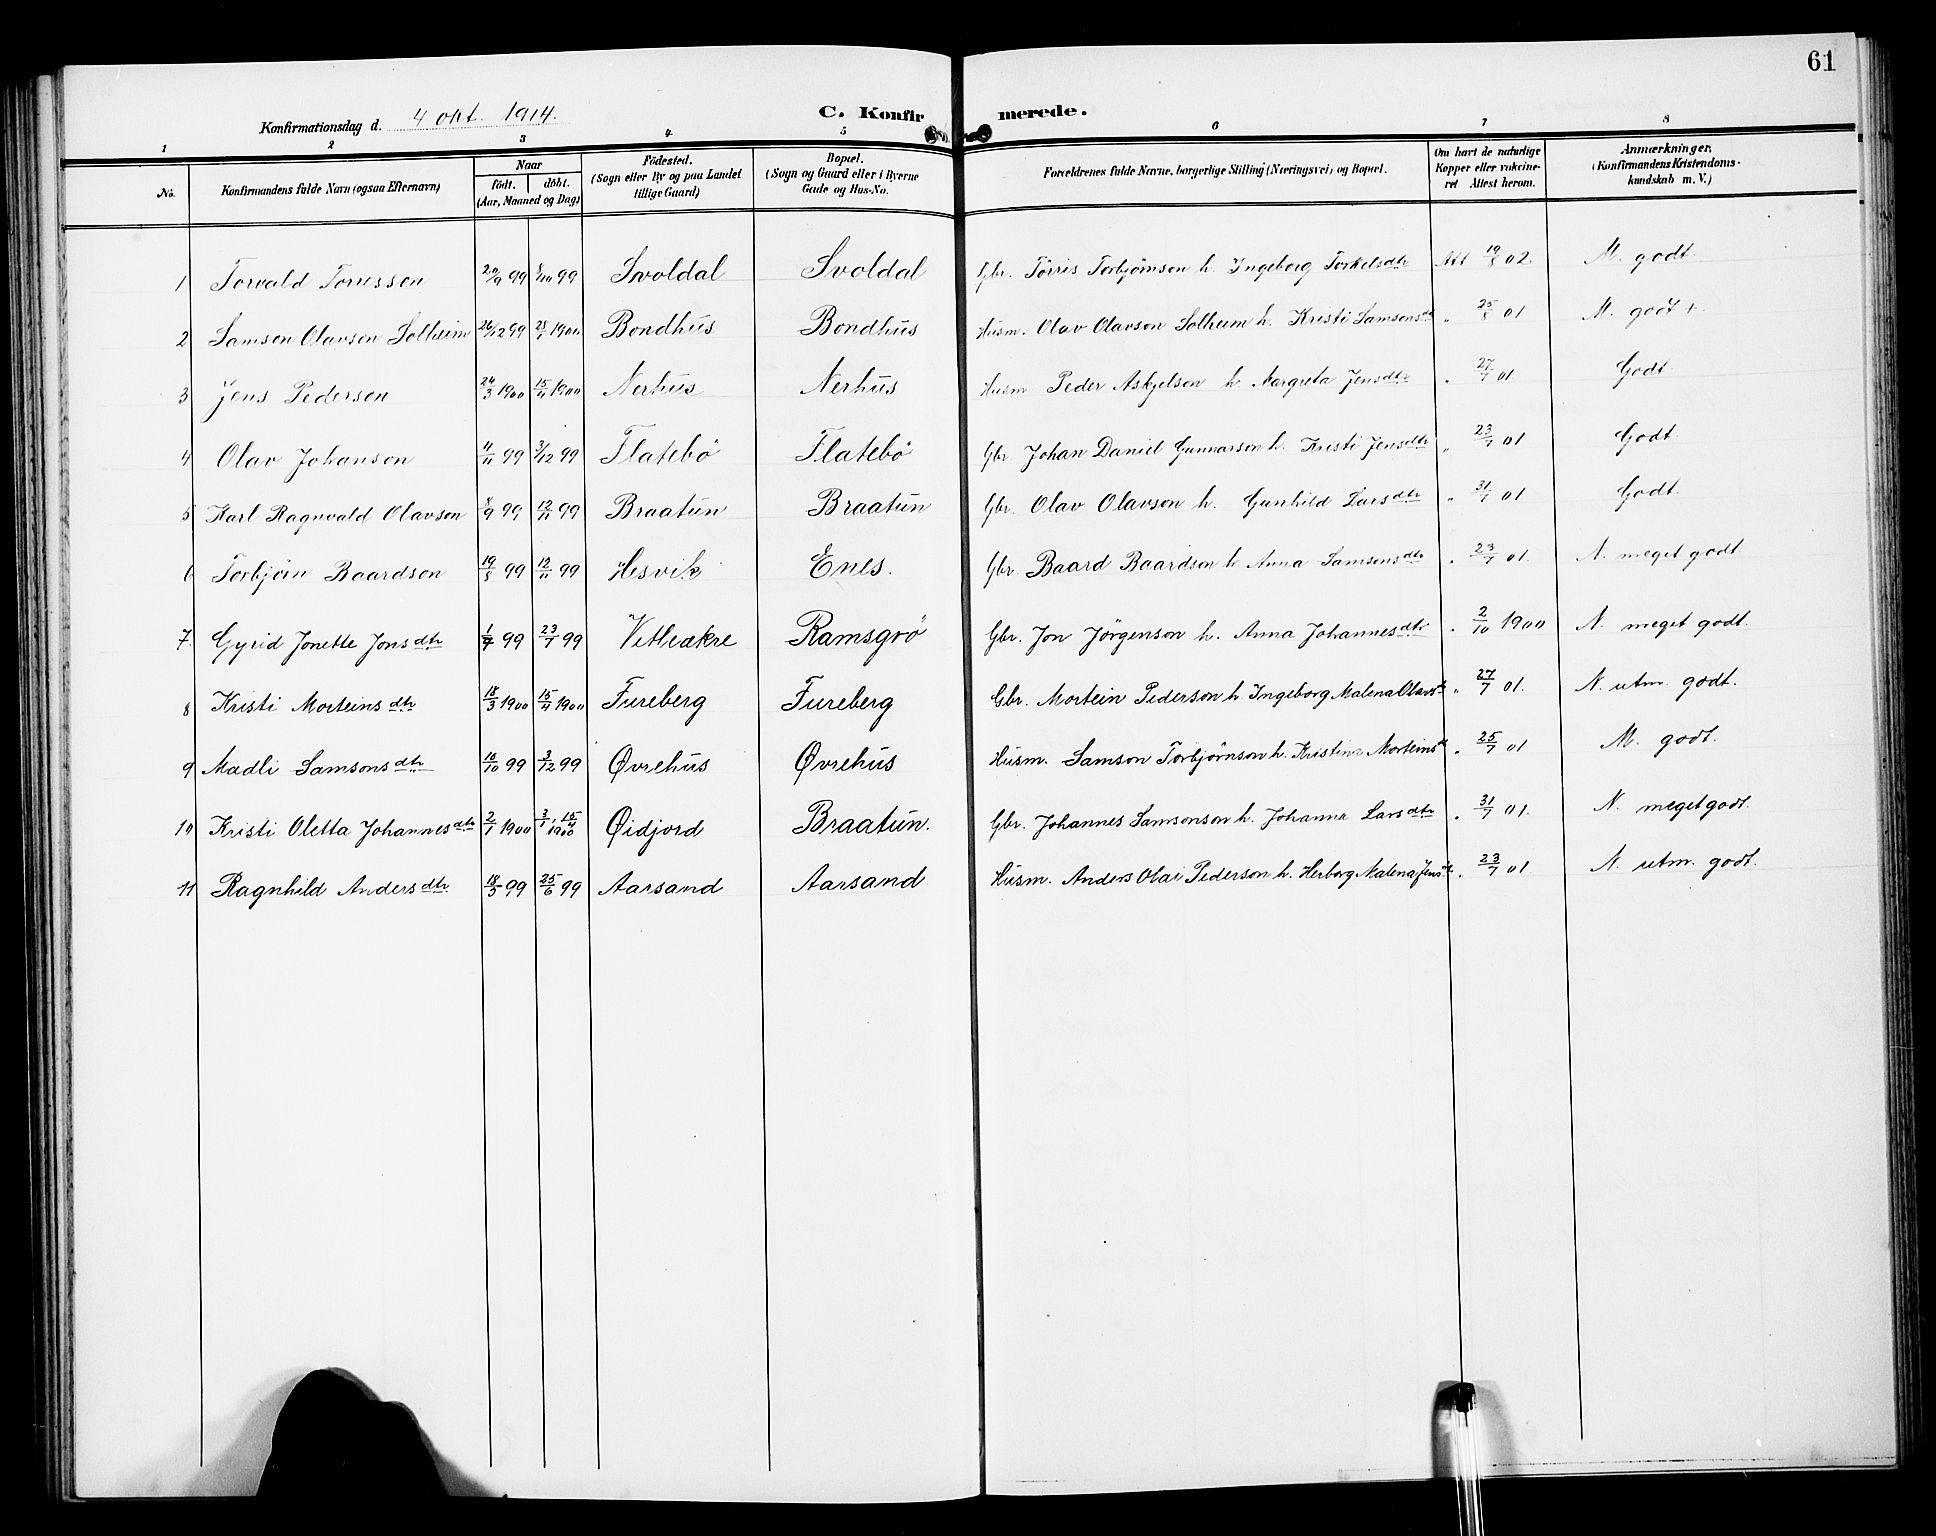 61
Konfirmationsdag d. 4 okt. 1914. C. Konfirmerede.
1 2 3 4 5 6 7 8
No. Konfirmandens fulde Navn (ogsaa Efternavn) Naar födt. döbt. (Aar, Maaned og Dag) Födested. (Sogn eller By og paa Landet tillige Gaard) Bopæl. (Sogn og Gaard eller i Byerne Gade og Hus-No. Forældrenes fulde Navne, borgerlige Stilling (Næringsvei) og Bopæl. Om havt de naturlige Kopper eller vakcineret Attest herom. Anmærkninger. (Konfirmandens Kristendomskundskab m. V.)
1 Torvald Torrisson 20/9 99 8/10 99 Svoldal Svoldal Gbr. Törris Torbjörnson h. Ingeborg Torkelsdtr Att 19/8 02 M. godt.
2 Samson Olavson Solheim 26/12 99 28/1 1900 Bondhus Bondhus Husm. Olav Olavson Solheim h. Kristi Samsonsdtr " 25/8 01 M. godt +.
3 Jens Pederson 24/3 1900 15/4 1900 Nerhus Nerhus Husm Peder Askjelson h. Margreta Jensdtr " 27/7 01 Godt.
4 Olav Johanson 4/11 99 3/12 99 Flatebö Flatebö Gbr. Johan Daniel Gunnarson h. Kristi Jensdtr " 23/7 01 Godt
5 Karl Ragnvald Olavson 8/9 99 12/11 99 Braatun Braatun Gbr. Olav Olavson h. Gunhild Larsdtr " 31/7 01 Godt.
6 Torbjörn Baardson 19/8 99 12/11 99 Hesvik Enes. Gbr. Baard Baardson h Anna Samsonsdtr " 23/7 01. N. meget godt
7. Gyrid Jonette Jonsdtr 1/7 99 23/7 99 Vetleækre Ramsgrö Gbr. Jon Jörgenson h. Anna Johannesdtr " 2/10 1900 N. meget godt.
8 Kristi Morteinsdtr 18/3 1900 15/4 1900 Fureberg Fureberg Gbr. Mortein Pederson h. Ingeborg Malena Olavsdtr " 27/7 01. N. utm. godt.
9 Madli Samsonsdtr 16/10 99 3/12 99 Øvrehus Øvrehus Husm. Samson Torbjörnson h. Kristina Morteinsdtr " 25/7 01 M. godt.
10 Kristi Oletta Johannesdtr 2/1 1900 3/1, 15/4 1900 Øidjord Braatun. Gbr. Johannes Samsonson h. Johanna Larsdtr " 31/7 01. N. meget godt.
11 Ragnhild Andersdtr 18/3 99 25/6 99 Aarsand Aarsand Husm. Anders Olai Pederson h. Herborg Malena Jensdtr " 23/7 01 N. utm. godt.